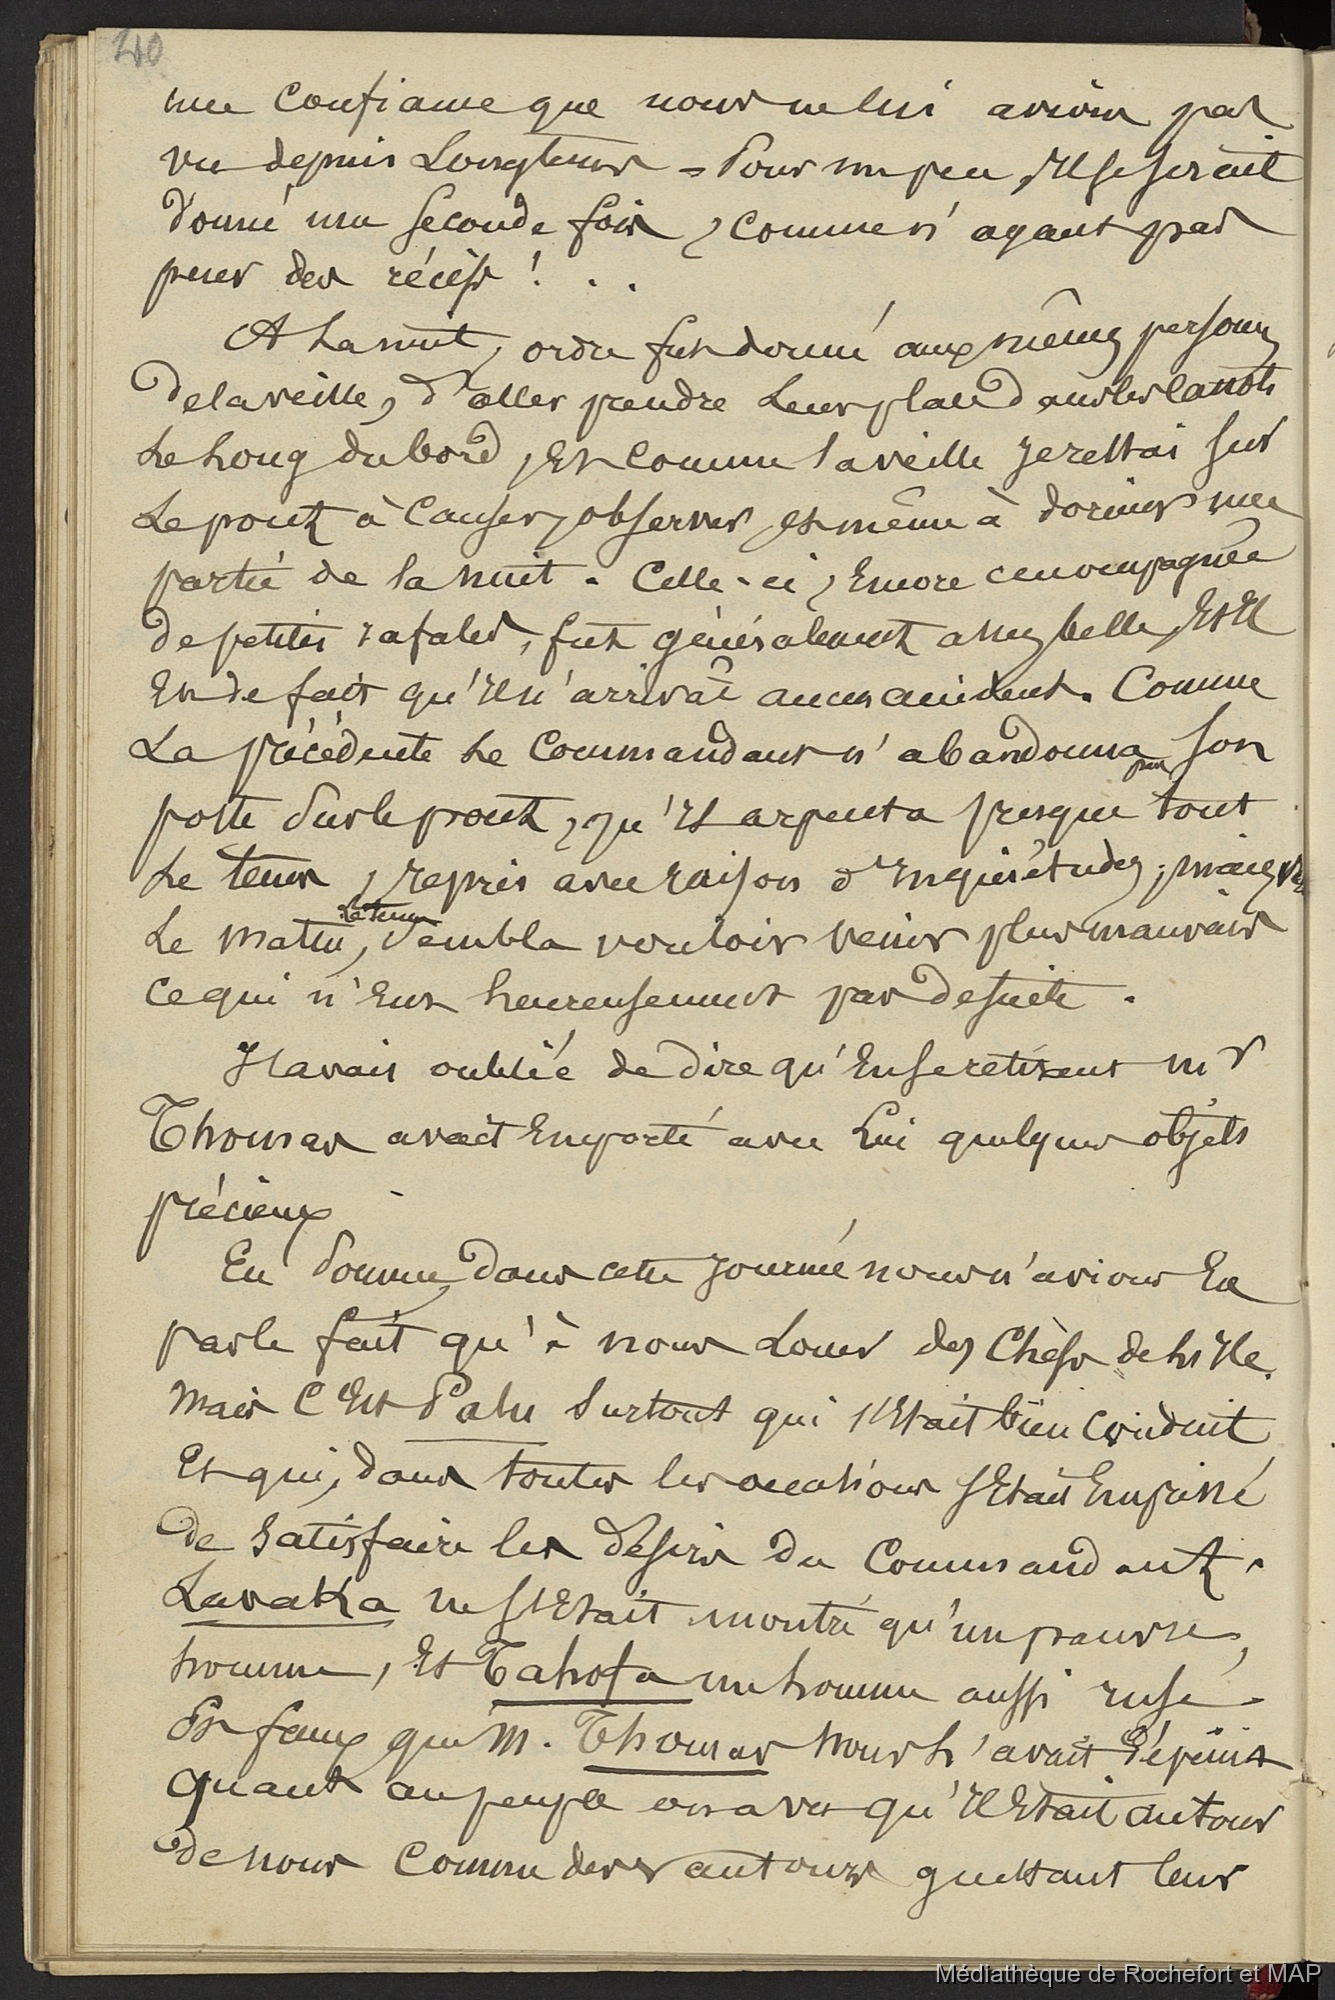 40
une confiance que nous ne lui avions pas
vu depuis Longtems = Pour un peu, Il se serait
donné une seconde fois, comme n'ayant pas
peur des récifs ! . .
A La nuit, ordre fut donné aux mêmes personnes
De la veille, d'aller prendre Leur place dans les canots
Le Long du bord, Et comme la veille Je restai sur
Le pont à causer, observer, et même à dormir une
partie de la nuit. Celle-ci, Encore accompagnée
de petites rafales, fut généralement assez belle, Et Il
En de fait qu'Il n'arrivât aucun accident. Comme
La précédente Le Commandant n'abandonna pas son
poste sur le pont, qu'Il arpenta presque tout
Le tems, repris avec raison d'Inquiétudes; mais vers
Le matin, Le tems sembla vouloir venir plus mauvais
ce qui n'Eut heureusement pas de suite.
J'avais oublié de dire qu'En se retirant Mr
Thomas avait Emporté avec Lui quelques objets
précieux.
En somme, dans cette Journée nous n'avions En
parle fait qu'à nous Louer des Chefs de L'Ile.
Mais C'Est Palu surtout qui s'Etait bien conduit
Et qui, dans toutes les occasions s'Etait Empressé
de satisfaire les désirs du Commandant.
Lavaka ne s'Etait montré qu'un pauvre
homme, Et Tahofa un homme aussi rusé
Et faux que M. Thomas Nous L'avait dépeint
Quant au peuple on a vu qu'Il Etait autour
de nous comme des vautours guettant leur
Médiathèque de Rochefort et MAP